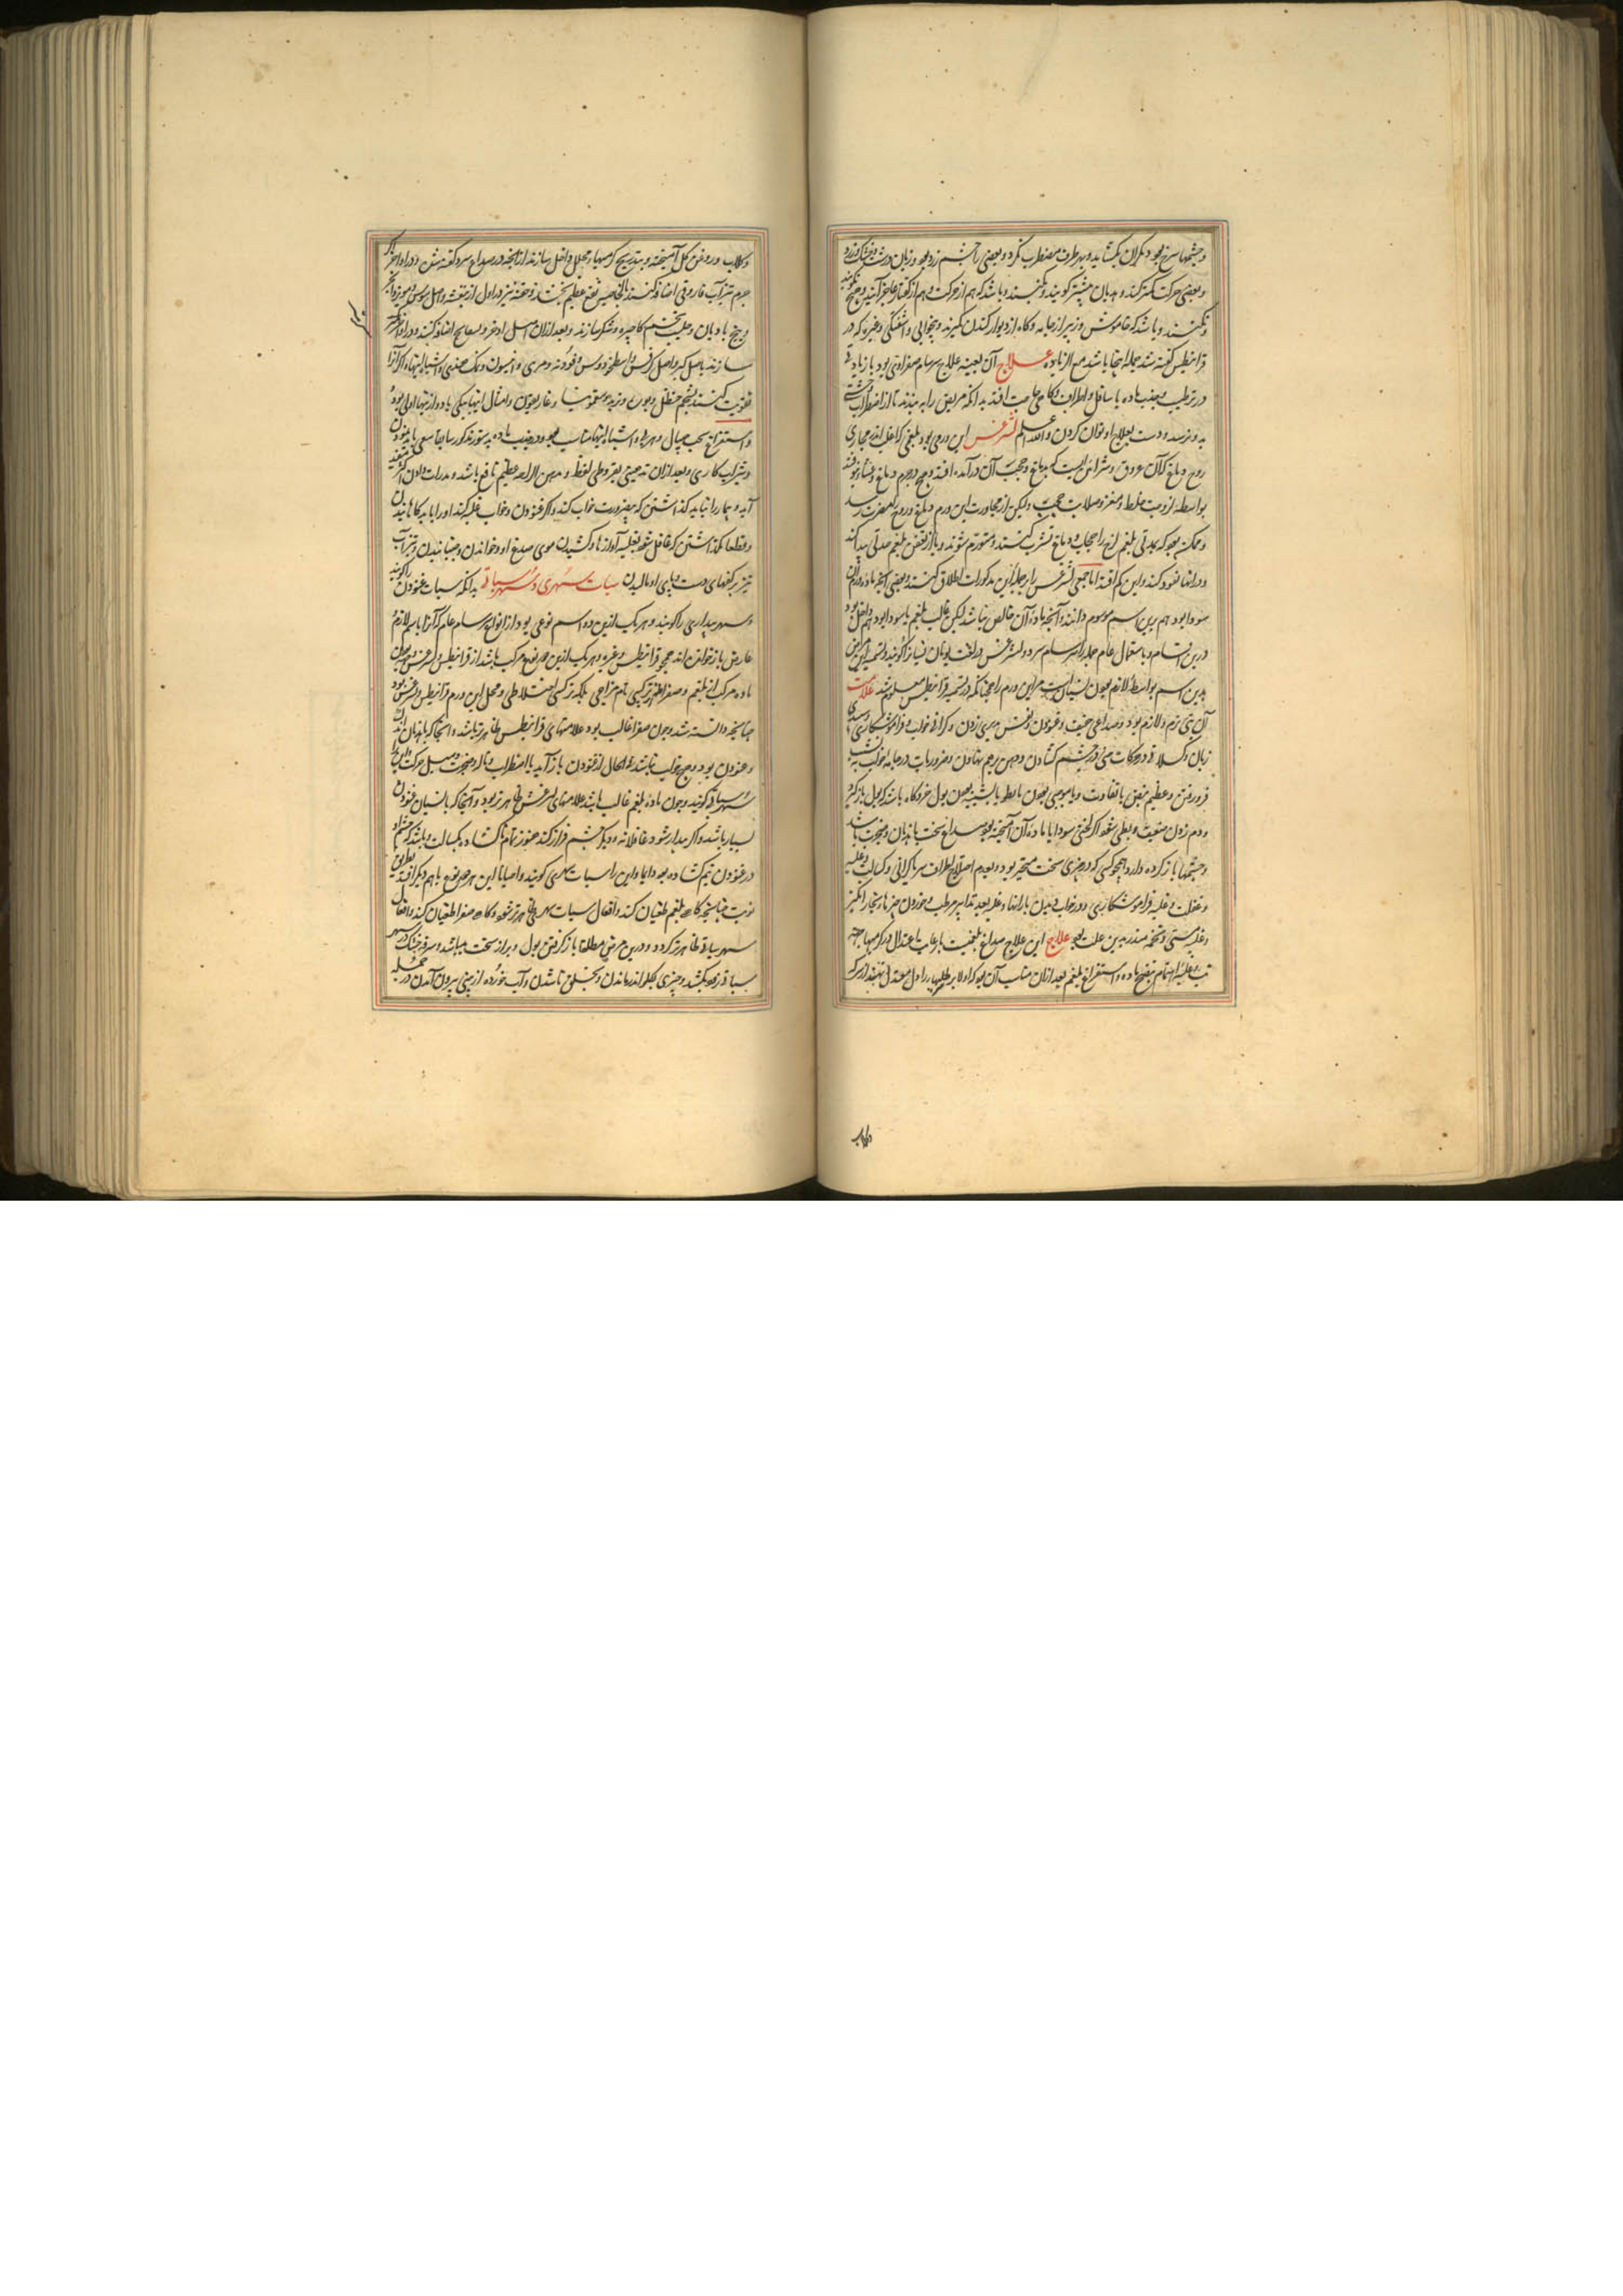 و چشمها سرخ بود و نگران بگشاید و بهر طرف مضطرب نگرد و بعضی را چشم زرد بود و زبان درشت و خشک و زرد
و بعضی حرکت کمتر کنند و هذیان بیشتر گویند و نجسبند و باشد که هم از حرکت و هم از گفتار عاجز آیند و هیچ نگویند
و نجنبند و باشد که خاموش وزیر از جامه و کاه از دیوار کندن گیرند و بیخوابی و آشفتگی و غیره که در
قرانیطس گفته شد جمله اینجا باشد مع الزیاده علاج آن بعینه علاج سرسام صفراوی بود با زیادتی
در ترطیب و جذب ماده با سافل و اطراف و گاهی حاجت افتد بدانکه مریض را به بندند تا از اضطراب
بدو نرسد و دست بعلاج او توان کردن والله اعلم لثرغس این ورمی بود بلغمی که اغلب اندر مجاری
روح دماغ که آن عروق و شرائین است که بدماغ و حجب آن درآمده افتد و هیچ در جرم دماغ و غشاء نیوفتد
بواسطه لزوجت غلظ و مغز و صلابت حجب ولیکن از مجاورت این ورم دماغ و روح را مضرت رسد
و ممکن بود که بمدتی بلغم لزج را حجاب و دماغ تشرب کنند و متورم شوند و یا از تعفن بلغم حدتی پیدا کند
و در آنها نفوذ کند و این کم افتد اما جمعی لثرغس را بر جمله این مذکورات اطلاق کنند و بعضی آنچه ماده ورم آن
سودا بود هم بدین اسم موسوم دانند و آنچه ماده آن خالص نباشد لیکن غالب بلغم یا سودا بود هم داخل بود
درین اقسام و باستعمال عام جمله را سرسام سرد و لثرغس در لغت یونان نسیان را گویند و تسمیه این مرض
بدین اسم بواسطه لازم بودن نسیان است مر این ورم را همچنانکه در تسمیه قرانیطس معلوم شد علامت
آن تبی نرم و لازم بود و صداعی خفیف و غنودن و نفس بینی زدن و گرانی خواب و فراموشکاری و سپیدی
زبان و کسلانی در حرکات حتی در چشم گشادن و دهن بر هم نهادن و ضروریات در جامه خواب
فرو رفتن و عظیم نبض با تفاوت و یا موجی بودن با بطو یا شبیه بودن بول خر و گاه باشد که بول باز گیرد
و دم زدن ضعیف و بطی شود اگر لختی سودا با ماده آن آمیخته بود صداع سخت با هذیان و ضجرت باشد
و چشمها باز کرده دارد همچو کسی که در چیزی سخت متحیر بود و بعدم اختلاج اطراف سر با گرانی و کسالت و غلبه
و غفلت و غلبه فراموشکاری و در خواب دیدن بارانها و غلبه بعد تدابیر مرطب و خوردن چیزهاء بخار انگیز
و غلبه مستی و تخمه منذر بدین علت بود علاج این علاج صداع بلغمیست با رعایت اعتدال در گرمیها جهة
تب و غلبه اهتمام بنضج ماده و استفراغ بلغم بعد از آن مناسب آن بود که اولا بر طلیها رادع معتدل نهند از سرکه
و گلاب
و گلاب و روغن گل آمیخته و بتدریج گرمیهاء محلل داخل سازند از آنچه در صداع سرد گفته شد و در اواخر اگر
جرم تیزآب فاروقی اضافه کنند بالخاصیت نفع عظیم بخشد و حقنه نیز در اول از بنفشه و اصل سوس و مویز و انجیر
و بیخ بادیان و حلبه و تخم کاجیره و شکر سازند و بعد از آن اصل اذخر و بسفایج اضافه کنند و در اواخر
سازند باصل کبر و اصل کرفس و اسطوخودوس و فودنه و مری و انیسون و نمک هندی و اشباه اینها و اگر آنرا
تقویت کنند بشحم حنظل و بورق و تربد و سقمونیا و غاریقون و امثال اینها یکی یا دو از اینها اولی بود
و استفراغ بحب جیپال و بهره و اشباه اینها مناسب بود و در جذب ماده بدستور مذکور سابقا سعی باید نمودن
و بشراب کاری و بعد از آن تدهینی بقیروطی لفظ و بدهن الراحه عظیم نافع باشد و مدرات دادن اکثر مفید
آید و بیمار را نباید گذاشتن که بضرورت خواب کند و اگر غنودن و خواب غلبه کند او را باید کاهانیدن
و قطعا نگذاشتن که غافل شود بغلبه آوازها و کشیدن موی صدغ او و خواندن و جنبانیدن و تیزآب
تیز بر کفهای دست و پای او مالیدن سبات سهری و سهر سباتی بدانکه سبات غنودن را گویند
و سهر بیداری را گویند و هر یک ازین دو اسم نوعی بود از انواع سرسام عام که آنرا باسم لازم و
عارض باز خوانده اند همچو قرانیطس و غیره و هر یک ازین هر دو نوع مرکب باشد از قرانیطس و لثرغس و چون
ماده مرکب از بلغم و صفرا افتد ترکیبی نه تام مزاجی بلکه ترکیبی اختلاطی و محل این ورم قرانیطس و لثرغس بود
چنانچه دانسته شد و چون صفرا غالب بود علامتهای قرانیطس ظاهرتر باشد و آنجا که با هذیان اندک
و غنودن بود و هیچ خواب نباشد و فی الحال از غنودن باز آید با اضطراب و ناله و ضجرت و میل حرکت این را
سهر سباتی گویند و چون ماده بلغم غالب باشد علامتهای لثرغس ظاهرتر بود و آنجا که با نسیان غنودن
بسیار باشد و اگر بیدار شود غافلانه و دیگر چشم فراز کند هنوز تمام ناگشاده بکسالت و باشد که چشم او
در غنودن نیم گشاده بود دایما و این را سبات سهری گویند و احیانا این هر دو نوع با هم دیگر افتد بطریق
نوبت چنانچه گاهی بلغم طغیان کند و افعال سبات سهری ظاهرتر شود و گاهی صفرا طغیان کند و افعال
سهر سباتی ظاهرتر گردد و درین مرض مطلقا باز گرفتن بول و براز سخت میباشد و سرفه خشک در سهر
سباتی زود بکشد و چیزی بگلو اندر ماندن و بحلق ناشدن و آب خورده از بینی بیرون آمدن در جمله